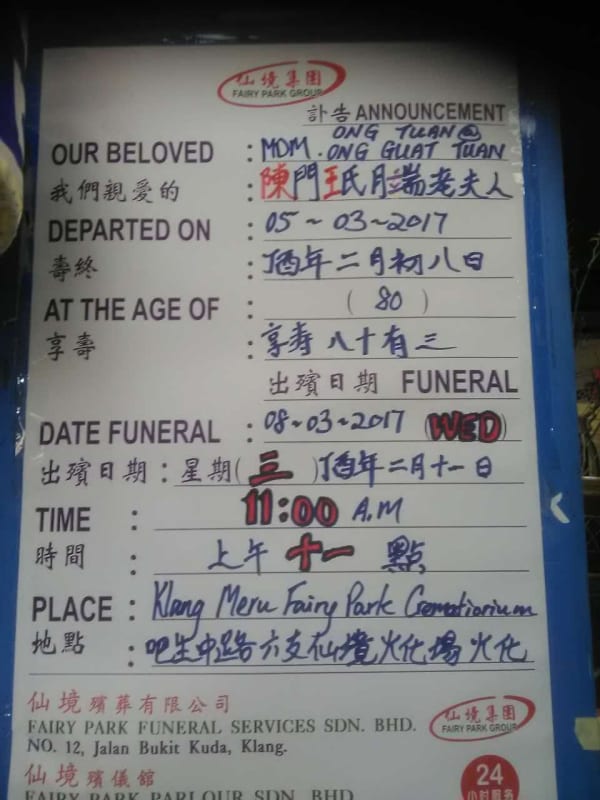 仙境集團
FAIRY PARK GROUP
訃告 ANNOUNCEMENT
ONG TUAN @
OUR BELOVED : MDM. ONG GUAT TUAN
我們親愛的 : 陳門王氏月端老夫人
DEPARTED ON : 05~03~2017
壽終 : 丁酉年二月初八日
AT THE AGE OF : (80)
享壽 : 享寿八十有三
出殯日期 FUNERAL
DATE FUNERAL : 08~03~2017 (WED)
出殯日期：星期(三)丁酉年二月十一日
TIME : 11:00 A.M
時間 : 上午十一點
PLACE : Klang Meru Fairy Park Crematiorium
地點 : 吧生中路六支仙境火化場火化
仙境殯葬有限公司
FAIRY PARK FUNERAL SERVICES SDN. BHD.
仙境集團
FAIRY PARK GROUP
NO. 12, Jalan Bukit Kuda, Klang.
仙境殯儀館
FAIRY PARK PARLOUR SDN. BHD.
24
小时服务